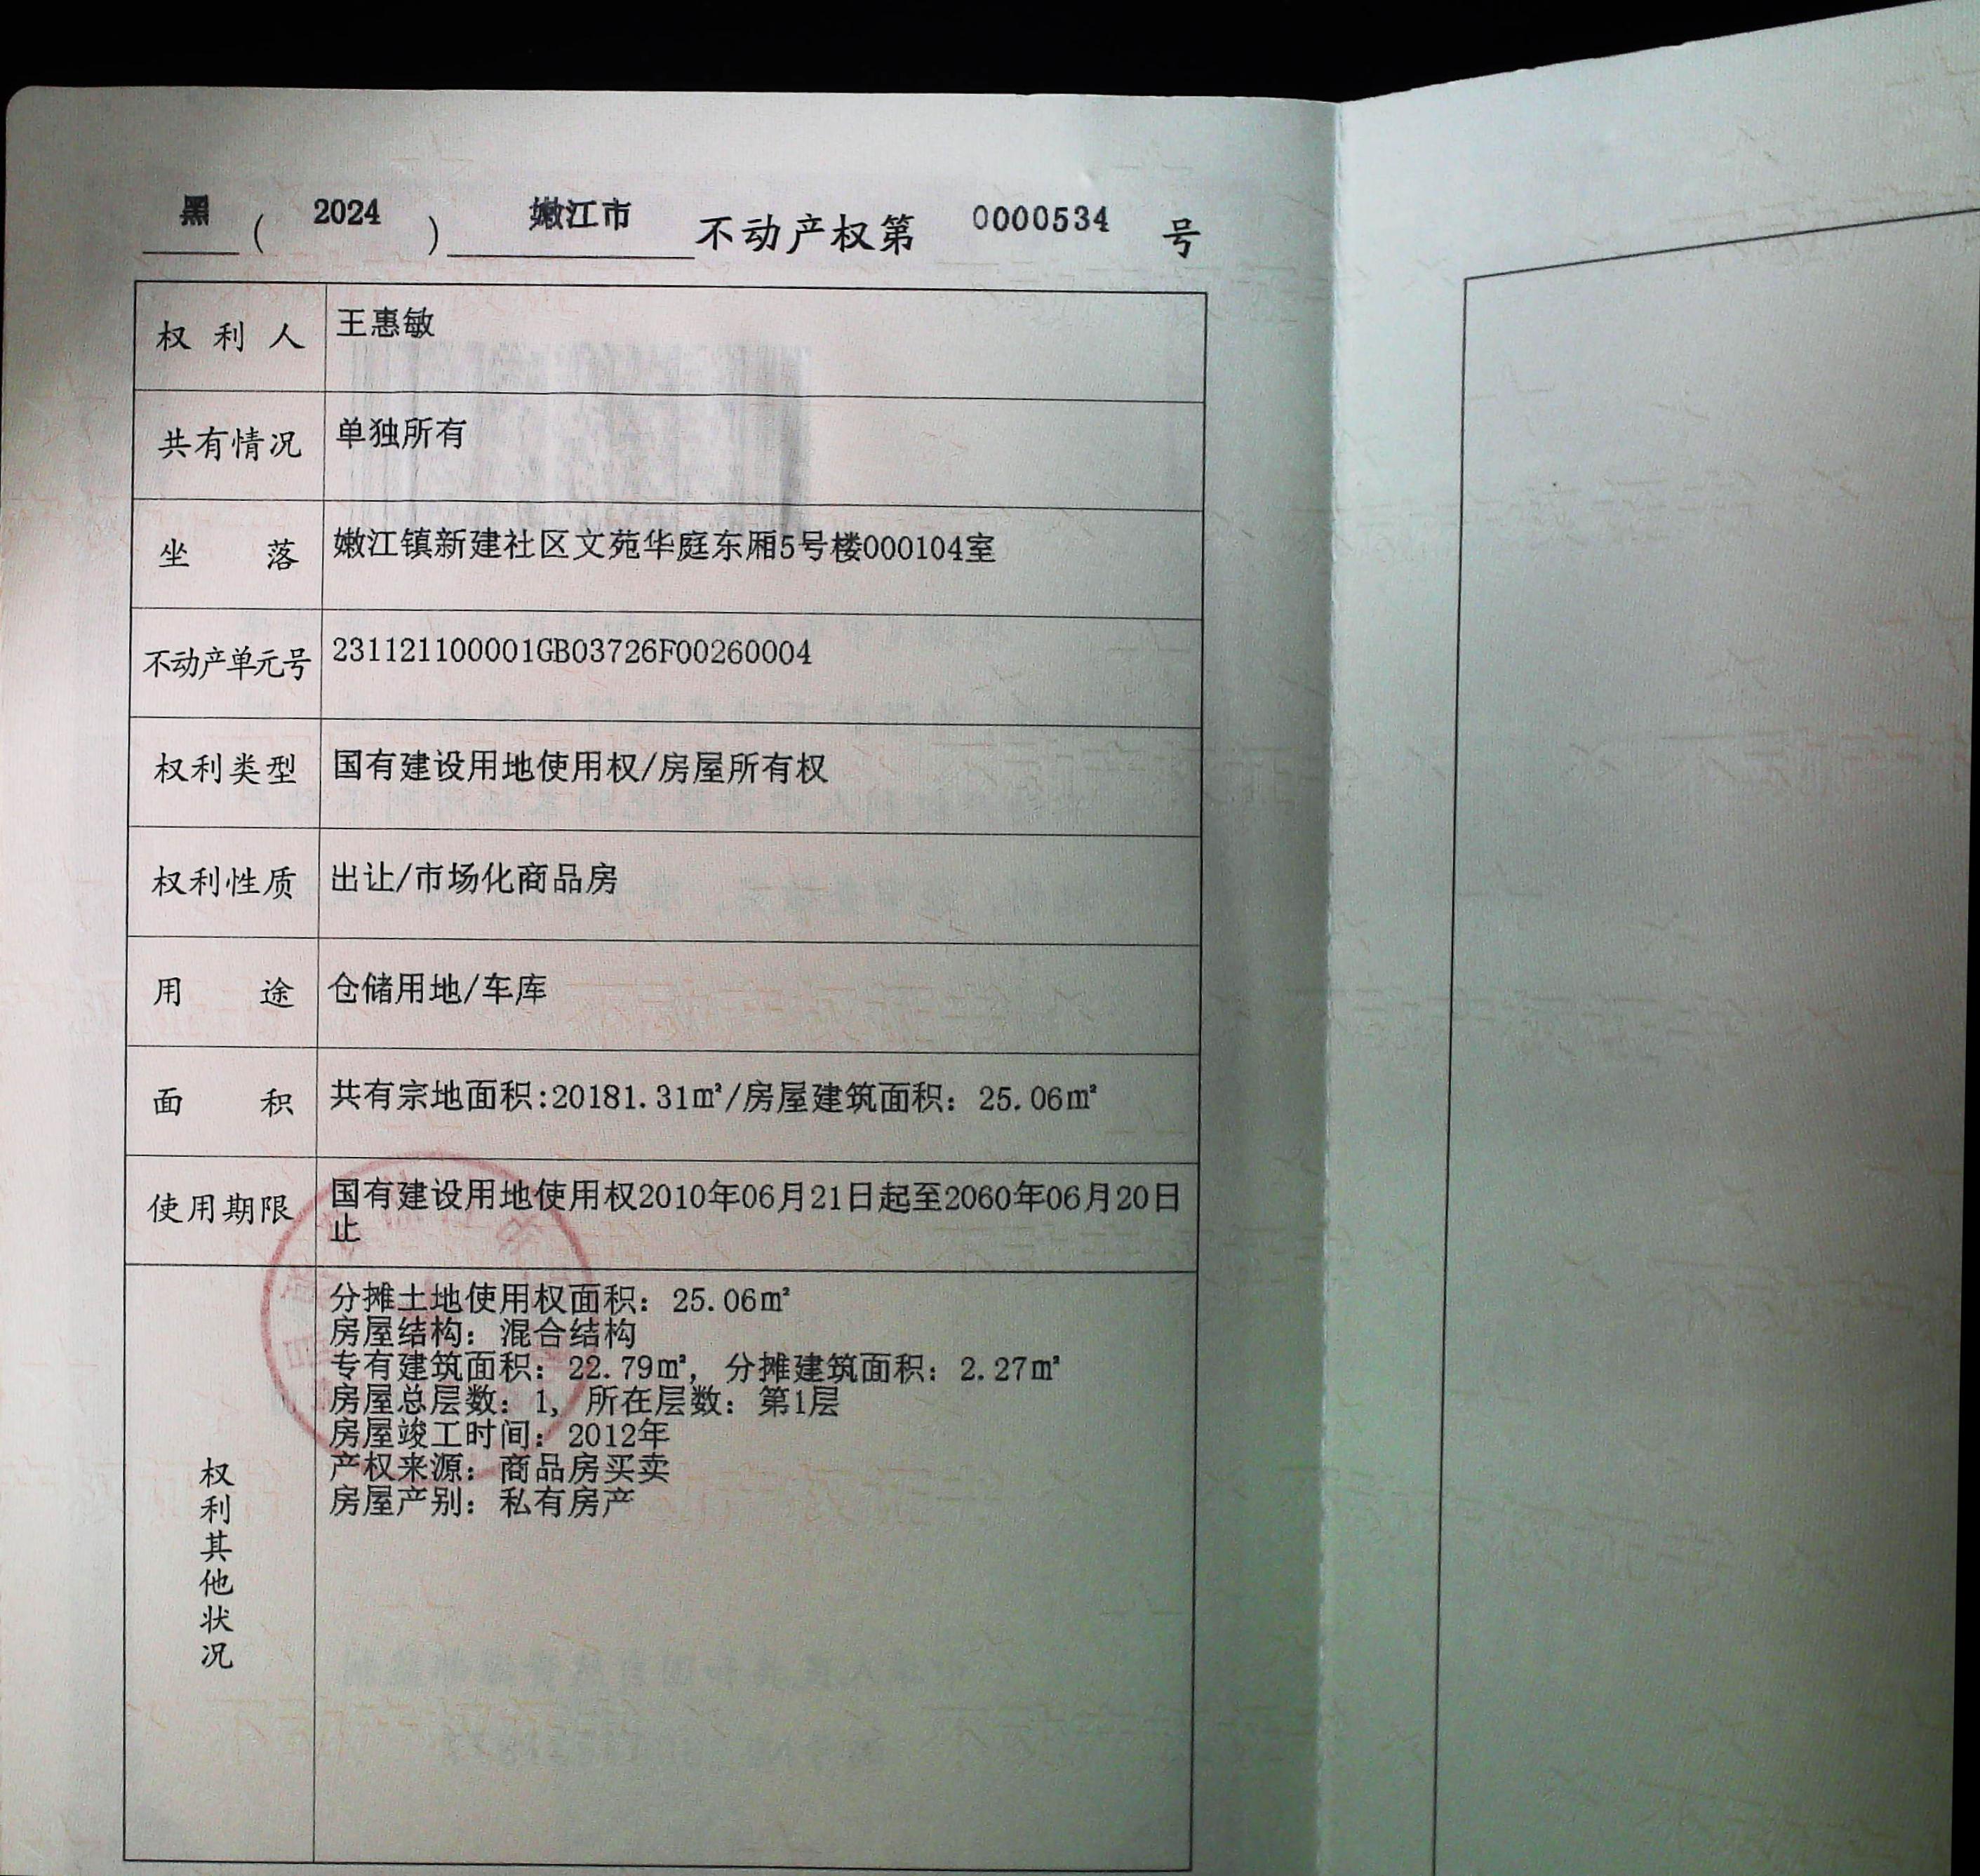 黑 ( 2024 ) 嫩江市 不动产权第 0000534 号
权利人 王惠敏
共有情况 单独所有
坐落 嫩江镇新建社区文苑华庭东厢5号楼000104室
不动产单元号 231121100001GB03726F00260004
权利类型 国有建设用地使用权/房屋所有权
权利性质 出让/市场化商品房
用途 仓储用地/车库
面积 共有宗地面积:20181.31㎡/房屋建筑面积：25.06㎡
使用期限 国有建设用地使用权2010年06月21日起至2060年06月20日
止
权利其他状况
分摊土地使用权面积：25.06㎡
房屋结构：混合结构
专有建筑面积：22.79㎡，分摊建筑面积：2.27㎡
房屋总层数：1，所在层数：第1层
房屋竣工时间：2012年
产权来源：商品房买卖
房屋产别：私有房产